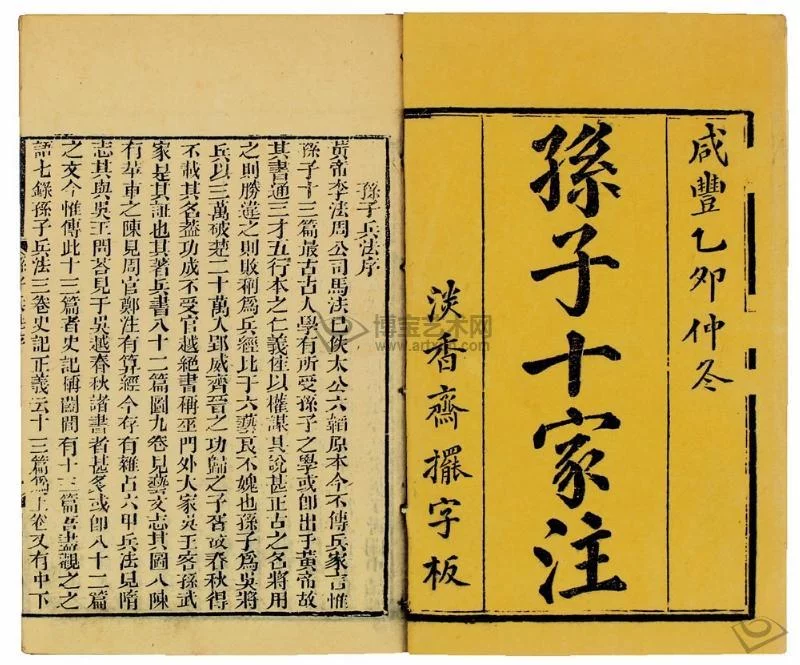 咸豐乙卯仲冬
孫子十家注
淡香齋擺字板
孫子兵法序
黃帝李法周公司馬法已佚太公六韜原本今不傳兵家言惟
孫子十三篇最古古人學有所受孫子之學或卽出于黃帝故
其書通三才五行本之仁義佐以權謀其說甚正古之名將用
之則勝違之則敗稱爲兵經比于六藝良不媿也孫子爲吳將
兵以三萬破楚二十萬人郢威齊晉之功歸之子胥故春秋得
不載其名蓋功成不受官越絕書稱巫門外大家吳王客孫武
家是其証也其著兵書八十二篇圖九卷見藝文志其圖八陳
有苹車之陳見周官鄭注有算經今存有雜占六甲兵法見隋
志其與吳王問荅見于吳越春秋諸書者甚多或卽八十二篇
之文今惟傳此十三篇者史記稱闔閭有十三篇吾盡觀之之
語七錄孫子兵法三卷史記正義云十三篇爲上卷又有中下
博宝艺术网
www.artxun.com